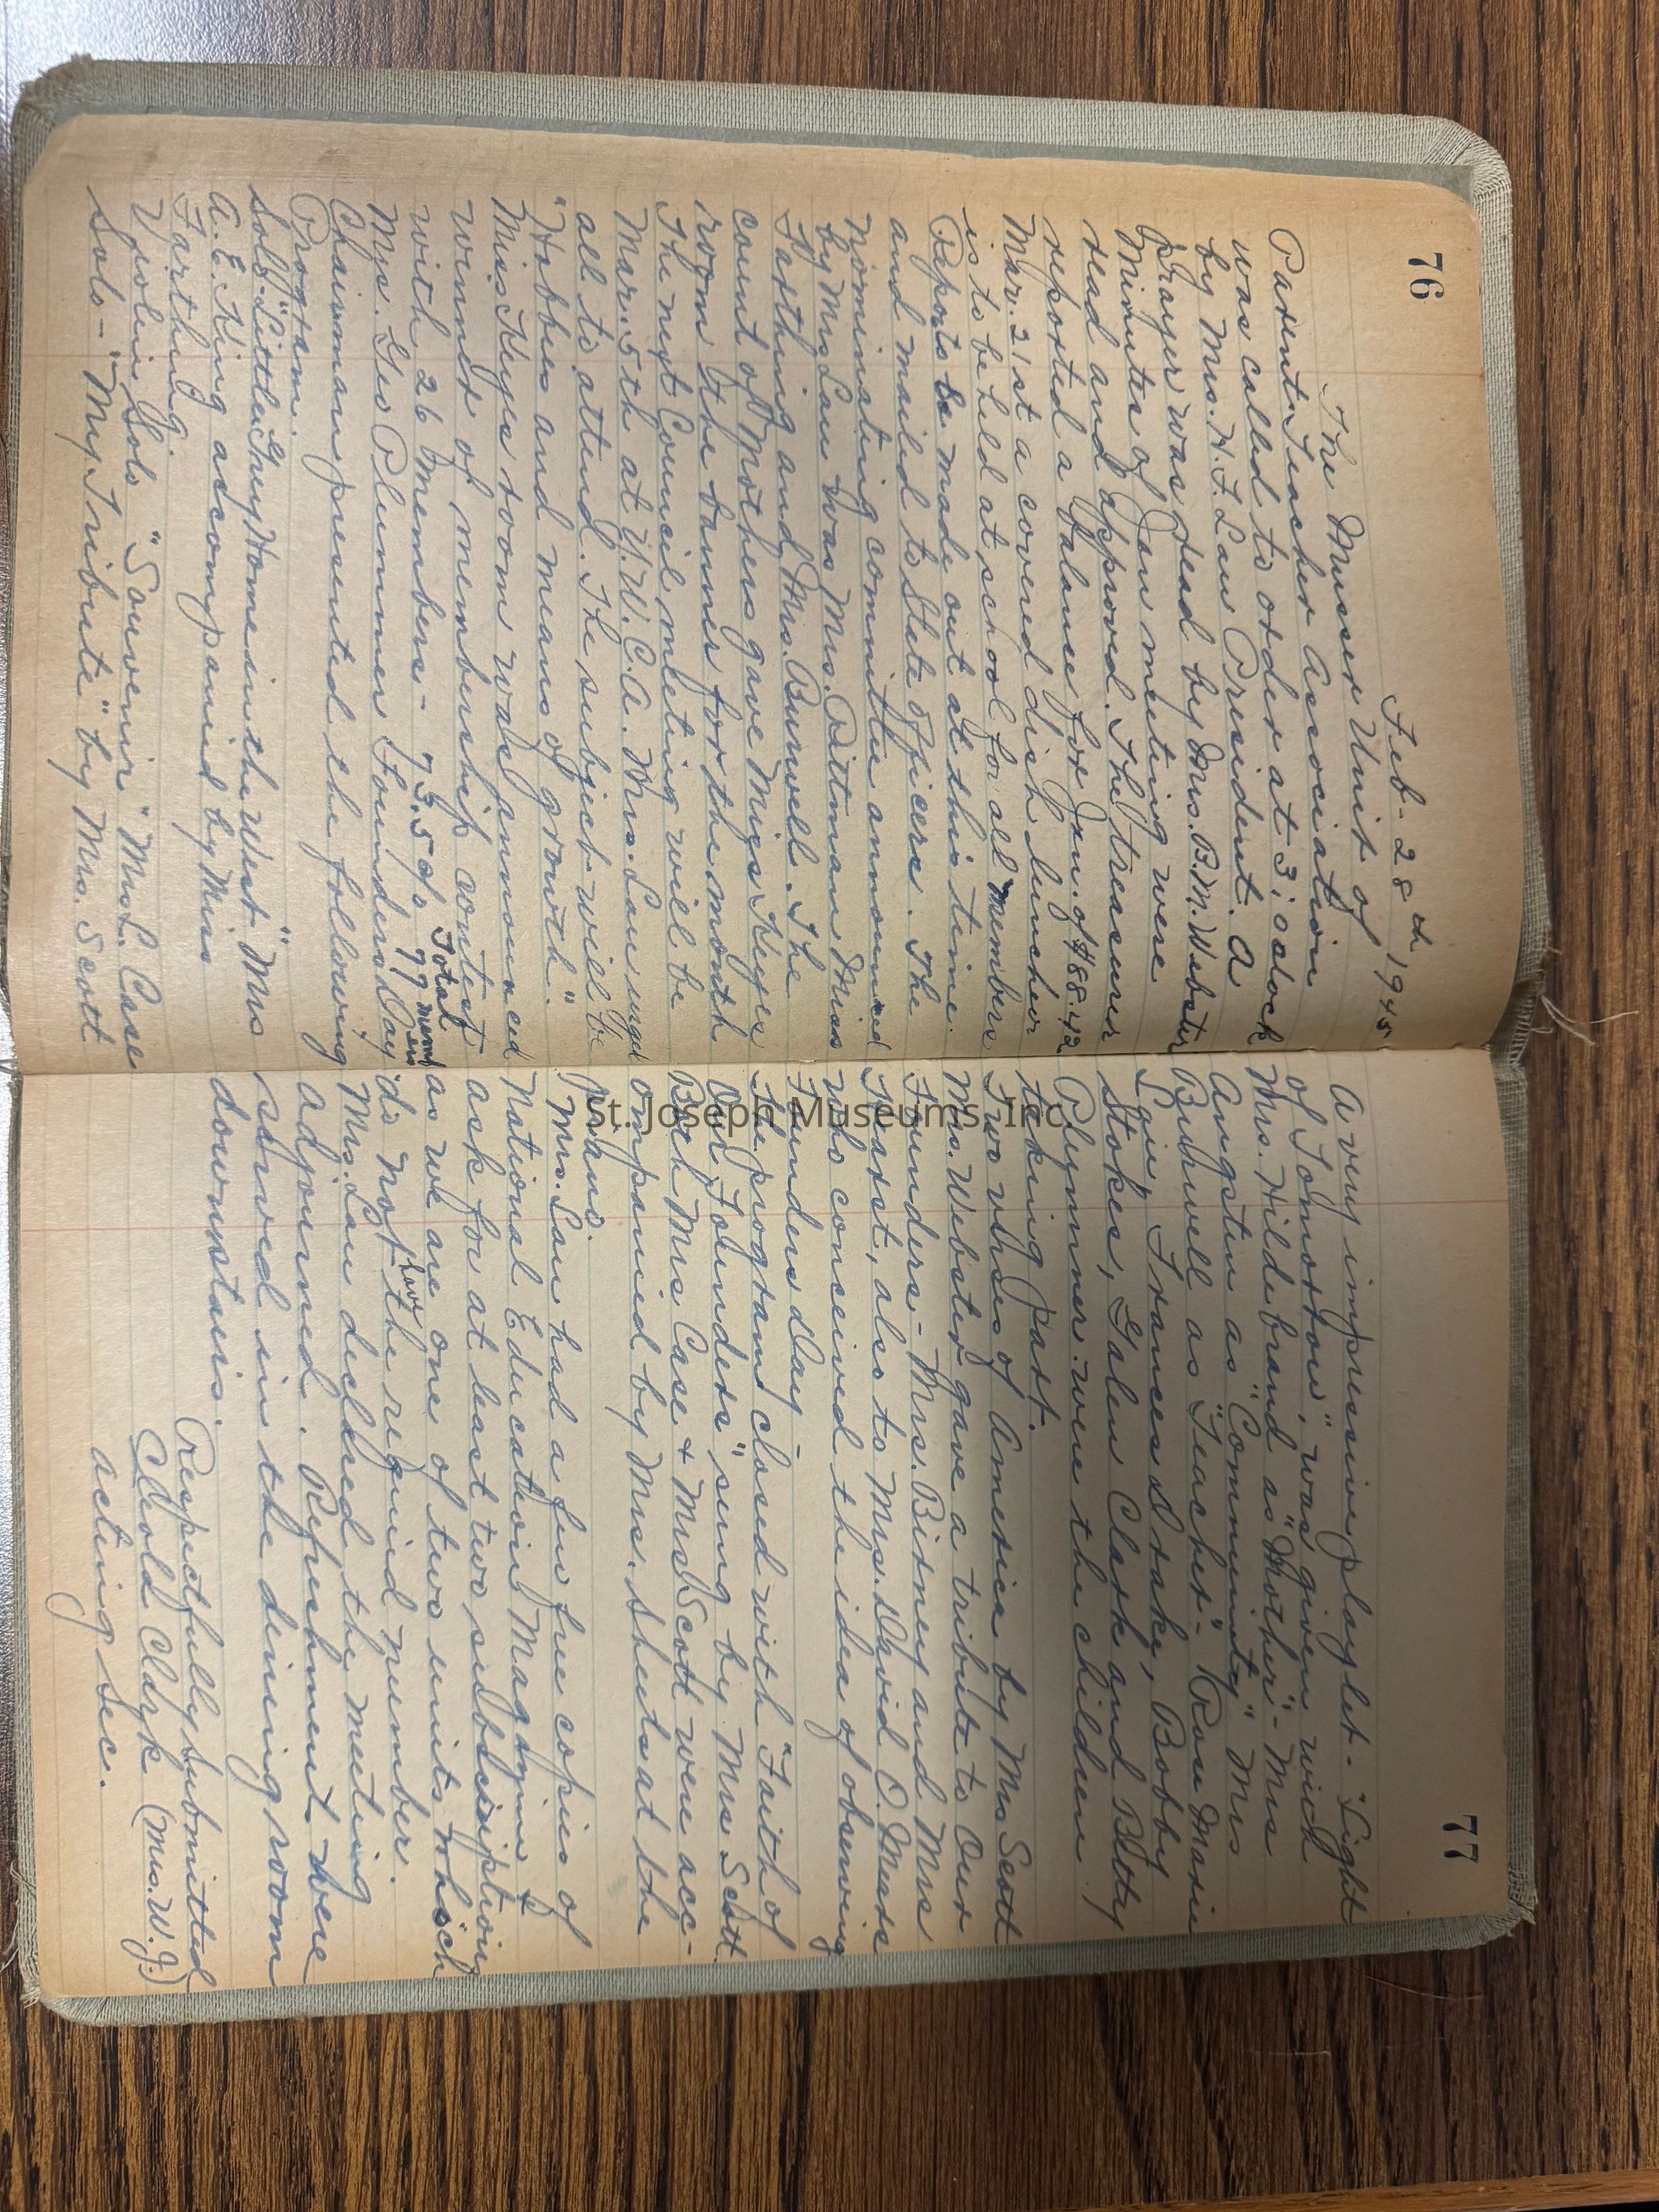 76
Feb- 28th 1945
The Musser Unit of
Parent-Teacher Association
was called to order at 3; oclock
by Mrs. H. F. Lau President. A
prayer was read by Mrs. B. M. Webster
Minutes of Jan meeting were
read and approved. The treasurer
reported a balance for Jan. of $88.42
Mar. 21st a covered dish luncheon
is to be held at school for all members
Reports to be made out at this time
and mailed to State officers. The
nominating committee announced
by Mrs Lau was Mrs. Pittman Miss
Farthing and Mrs. Burwell. The
count of Mothers gave Miss Keyes
room the banner for the month
The next Council meeting will be
Mar. 5th at Y.W.C.A. Mrs. Lau urged
all to attend. The subject will be
"Hobbies and means of growth".
Miss Keyes room was announced
winner of membership contest
with 26 members- 73.5% Total 99 members
Mrs. Geo Plummer Founders Day
Chairman presented the following
Program.
Solo-"Little Grey Home in the West" Mrs
A. E. King accompanied by Miss
Farthing.
Violin Solo "Souvenir" Mrs L. Case
Solo- "My Tribute" by Mrs. Scott
77
A very impressive playlet- "Light
of Tomorrow", was given with
Mrs. Hildebrand as "Mother"- Mrs
Angstin as "Community" Mrs
Bidwell as "Teacher"- Rose Marie
Frances Drake, Bobby
Stokes, Galen Clark and Betty
Plymner were the children
taking part.
Two verses of America by Mrs. Scott
Mrs. Webster gave a tribute to Our
Founders- Mrs. Birney and Mrs
Hearst, also to Mrs. David O. Mears
who conceived the idea of observing
Founders Day-
The program closed with "Faith of
Our Founders" sung by Mrs Scott.
Both Mrs Case & Mrs Scott were acc-
ompanied by Mrs. Sheets at the
piano.
Mrs. Lau had a few free copies of
National Education Magazine &
ask for at least two subscriptions
as we are one of two units which
do not have the required number.
Mrs. Lau declared the meeting
adjourned. Refreshment were
served in the dining room
downstairs.
Respectfully submitted
Cleold Clark (Mrs. W. J.)
acting Sec.
St. Joseph Museums, Inc.